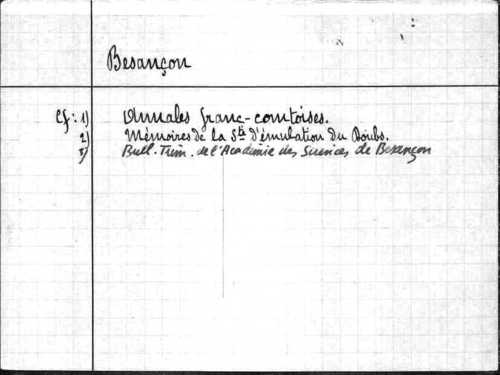 Besançon
Cf : 1) Annales franc-comtoises.
2) Mémoires de la Sté d'émulation du Doubs.
3) Bull. Trim. de l'Académie des Sciences de Besançon